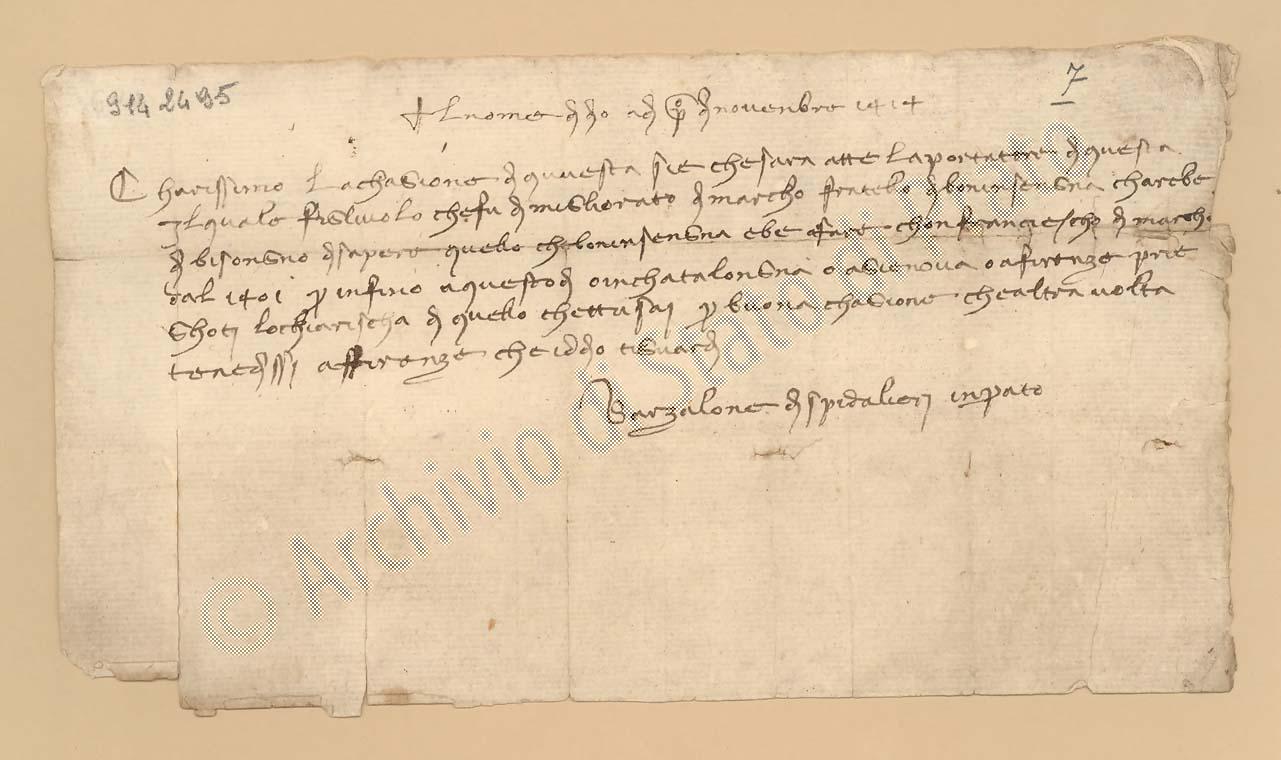 914 2495
7
+ Al nome di dio adi primo di novenbre 1414
Charissimo la chagione di quuesta sie che sara atte la portatore di questa
il quale figliuolo che fu di migliorato di marcho fratello di boninsengna charebe
di bisongno di sapere quello che boninsengna ebe affare chon franciescho di marcho
dal 1401 per infino a questo di o in chatalongna o a gienova o a firenze prie
ghoti lo chiarischa di quello chettu sai per buona chagione che altra volta
tenedissi affirenze che iddio ti guardi
Barzalone di spidalieri in pato
© Archivio di Stato di Prato